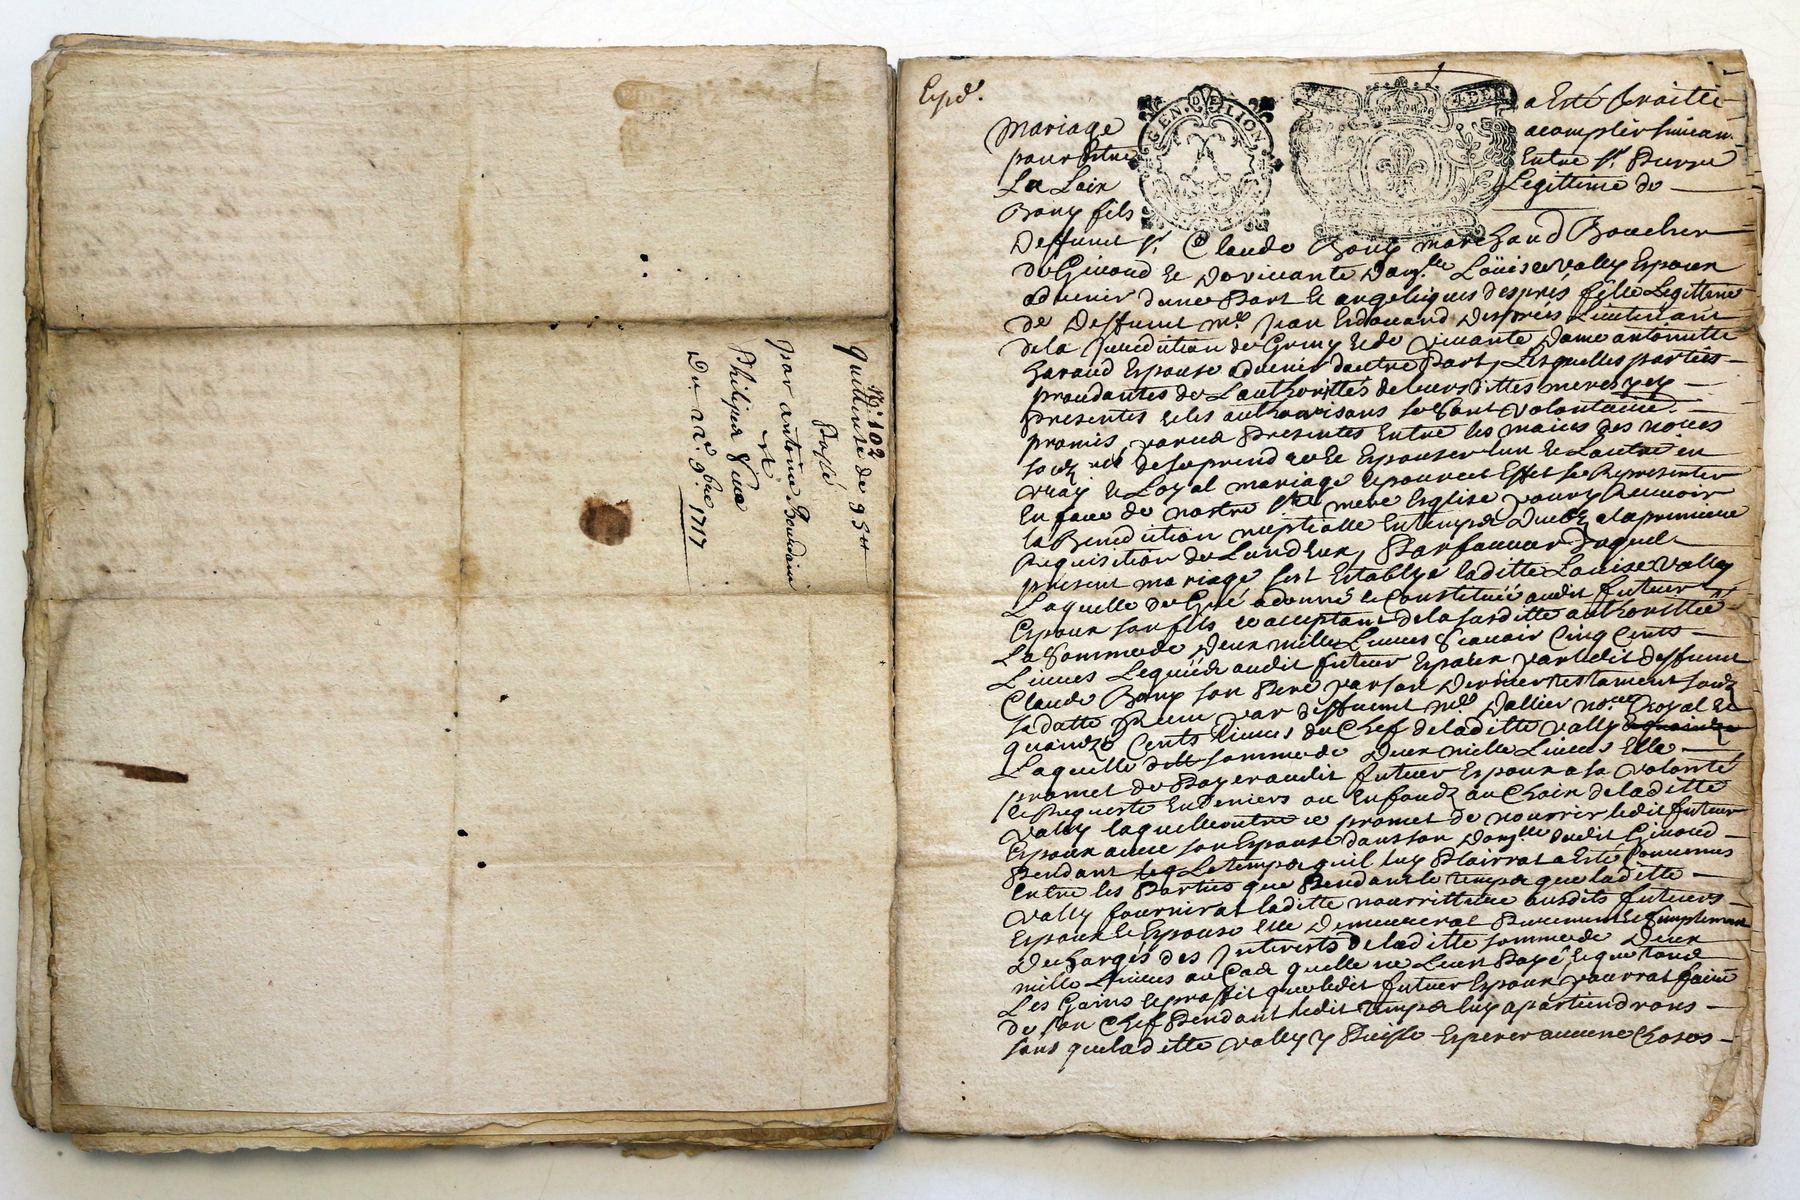 N.º 102
Quittance de 95 ₶
Passé
par antoine Bourdain
et
Philiper
Du 22.e 9.bre 1717
Expd.
GEN. DE LION
a Esté traitté
Mariage
acomplir
pour
Entre Sr. Pierre
Legittime de
Bony fils
Deffunt Sr. Claude Bony marchand Boucher
de Givord et de vivante Damlle. Loüise Vally Espoux
advenir d'une Part et angelique despres fille Legittime
de Deffunt Me. Jean Edouard Despres Lieutenant
de la Juridition de Griny et de vivante Dame antoinette
Espouse advenir dautre Part, Lesquelles parties
procedantes de Lauthoritté de leurs dittes meres icy
presentes et les authorisans se sont volontairemt.
promis par ces Presentes Entre les mains des noues
souz.nés de se prendre et Espouser lun et Lautre en
vray et Loyal mariage et pour cet Effet se Representer
En face de nostre Ste. mere Esglise pour y Recevoir
la Benediction nuptialle En temps deub et a la premiere
Requisition de Lun d'Eux, Par faveur duquel
present mariage sest Establye laditte Louise Vally
Laquelle de Gré a donné et Constitué audit futeur
Espoux son fils acceptant de la susditte authoritté
La Somme de Deux mille Livres Scavoir Cinq Cents
Livres Leguée audit futeur Espoux par ledit deffunt
Claude Bony son Pere par son Dernier testament souz
sa datte Receu par deffunt Me. Dallier nore. Royal Et
quainze Cents Livres du Chef de laditte Vally
Laquelle ditte somme de Deux mille Livres Elle
promet de Payer audit futeur Espoux a sa volonté
et Requeste En Deniers ou En fondz au Choix de laditte
Vally laquelle outre ce promet de nourrir ledit futeur
Espoux avec son Espouse dans son Domlle. dudit Givord
Pendant Le temps quil luy Plairrat a Esté Convenus
Entre les Parties que Pendant le temps que laditte
Vally fournirat laditte nourritture ausdits futeurs
Espoux et Espouse elle Demeurerat Purement et Simplement
Dechargés des Interests de laditte somme de Deux
mille Livres au Cas quelle ne Leur Payé et que tous
Les Gains et proffit que ledit futeur Espoux pourrat faire
de son Chef Pendant ledit temps luy apartiendrons
sans que laditte Vally y Puisse Esperer aucune Choses